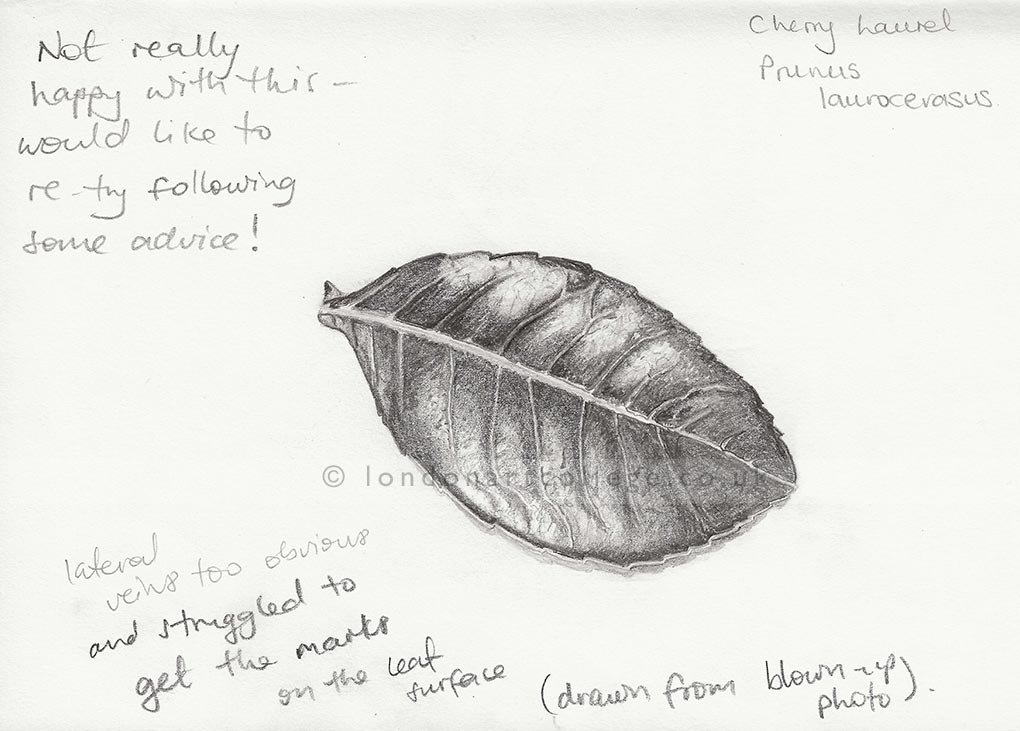 Not really
happy with this -
would like to
re-try following
some advice!
Cherry Laurel
Prunus
laurocerasus.
© londonartcollege.co.uk
lateral
veins too obvious
and struggled to
get the marks
on the leaf
surface
(drawn from blown-up
photo).